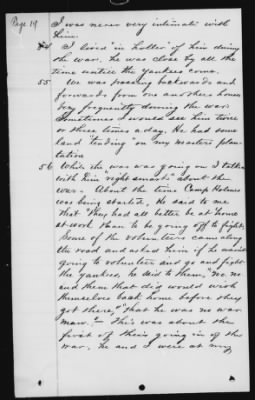 Page 19
I was never very intimate with
him.
54 I lived "in holler" of him during
the war. he was close by all the
time until the Yankees come.
55 We was passing backwards and
forwards from one anothers houses
very frequently during the war.
Sometimes I would see him twice
or three times a day. He had some
land "tending" on my masters plan-
tation
56 While the war was going on I talked
with him "right smart" about the
war. About the time Camp Holmes
was being started, He said to me
that "they had all better be at home
at work than to be going off to fight,
Some of the volunteers came along
the road and asked him if he wasnt
going to volunteer and go and fight
the Yankees, he said to them, "no, no
and them that did would wish
themselves back home before they
got there," "that he was no war
man." This was about the
first of their going in of the
war, he and I were at my